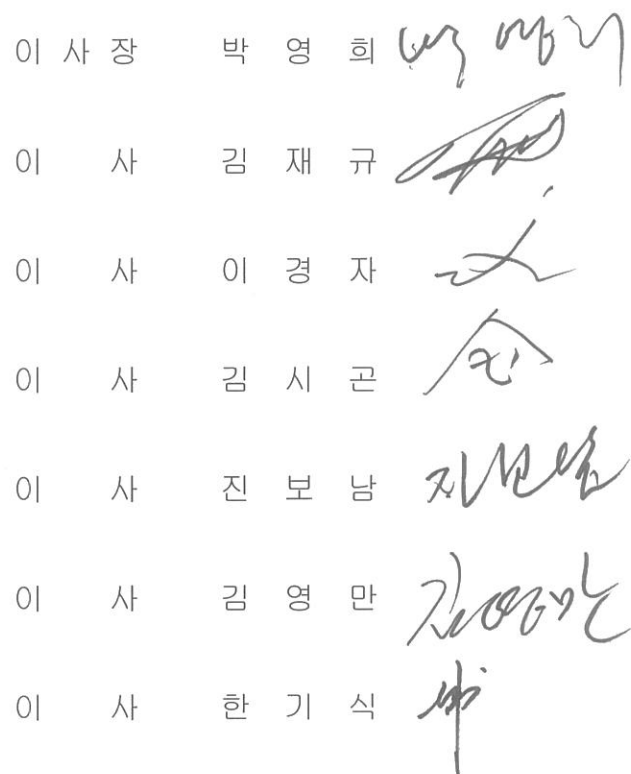 이 사 장 박 영 희 박영희
이 사 김 재 규
이 사 이 경 자
이 사 김 시 곤
이 사 진 보 남 진보남
이 사 김 영 만 김영만
이 사 한 기 식